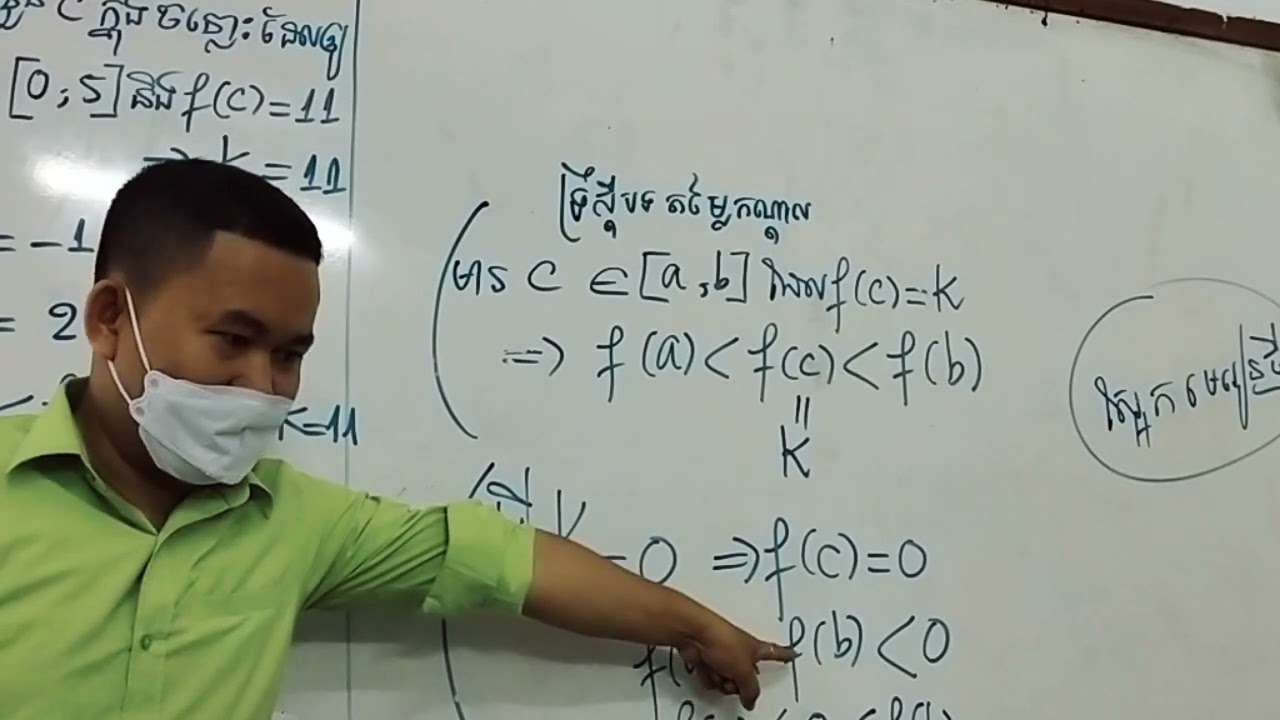 C ក្នុងចន្លោះដែលឲ្យ
[0 ; 5] និង f(c) = 11
=> k = 11
= -1
= 2
k=11
ទ្រឹស្តីបទតម្លៃកណ្តាល
មាន C ∈ [a , b] ដែល f(c) = k
=> f(a) < f(c) < f(b)
=
k
បើ k = 0 => f(c) = 0
f(b) < 0